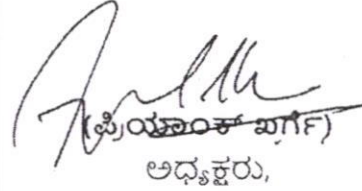 (ಪ್ರಿಯಾಂಕ್ ಖರ್ಗೆ)
ಅಧ್ಯಕ್ಷರು,